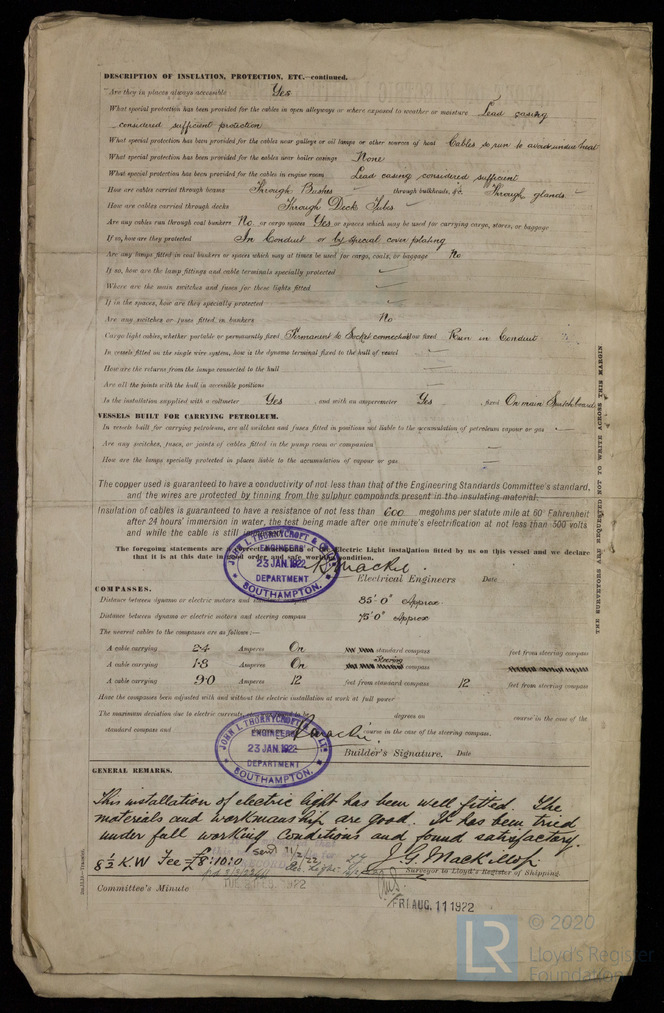 DESCRIPTION OF INSULATION, PROTECTION, ETC.—continued.
Are they in places always accessible Yes
What special protection has been provided for the cables in open alleyways or where exposed to weather or moisture Lead casing
considered sufficient protection
What special protection has been provided for the cables near galleys or oil lamps or other sources of heat Cables so run to avoid undue heat
What special protection has been provided for the cables near boiler casings None
What special protection has been provided for the cables in engine room Lead casing considered sufficient
How are cables carried through beams Through Bushes through bulkheads, &c. Through glands
How are cables carried through decks Through Deck Tubes
Are any cables run through coal bunkers No or cargo spaces Yes or spaces which may be used for carrying cargo, stores, or baggage
If so, how are they protected In Conduit or by special cover plating
Are any lamps fitted in coal bunkers or spaces which may at times be used for cargo, coals, or baggage No
If so, how are the lamp fittings and cable terminals specially protected
Where are the main switches and fuses for these lights fitted
If in the spaces, how are they specially protected
Are any switches or fuses fitted in bunkers No
Cargo light cables, whether portable or permanently fixed Permanent to Socket connection how fixed Run in Conduit
In vessels fitted on the single wire system, how is the dynamo terminal fixed to the hull of vessel
How are the returns from the lamps connected to the hull
Are all the joints with the hull in accessible positions
Is the installation supplied with a voltmeter Yes , and with an amperemeter Yes , fixed On main Switchboard
VESSELS BUILT FOR CARRYING PETROLEUM.
In vessels built for carrying petroleum, are all switches and fuses fitted in positions not liable to the accumulation of petroleum vapour or gas
Are any switches, fuses, or joints of cables fitted in the pump room or companion
How are the lamps specially protected in places liable to the accumulation of vapour or gas
The copper used is guaranteed to have a conductivity of not less than that of the Engineering Standards Committee's standard,
and the wires are protected by tinning from the sulphur compounds present in the insulating material.
Insulation of cables is guaranteed to have a resistance of not less than 600 megohms per statute mile at 60° Fahrenheit
after 24 hours' immersion in water, the test being made after one minute's electrification at not less than 500 volts
and while the cable is still
The foregoing statements are of the Electric Light installation fitted by us on this vessel and we declare
that it is at this date in good order and safe working condition.
JOHN I. THORNYCROFT & CO LTD
ENGINEERS
23 JAN. 1922
DEPARTMENT
SOUTHAMPTON.
Electrical Engineers Date
COMPASSES.
Distance between dynamo or electric motors and compass 85'-0" Approx
Distance between dynamo or electric motors and steering compass 75'-0" Approx
The nearest cables to the compasses are as follows:—
A cable carrying 2.4 Amperes On standard compass feet from steering compass
A cable carrying 1.8 Amperes On Steering compass
A cable carrying 9.0 Amperes 12 feet from standard compass 12 feet from steering compass
Have the compasses been adjusted with and without the electric installation at work at full power
The maximum deviation due to electric currents, degrees on course in the case of the
standard compass and course in the case of the steering compass.
JOHN I. THORNYCROFT & CO LTD
ENGINEERS
23 JAN. 1922
DEPARTMENT
SOUTHAMPTON.
Builder's Signature. Date
GENERAL REMARKS.
This installation of electric light has been well fitted. The
materials and workmanship are good. It has been tried
under full working conditions and found satisfactory.
8½ K.W Fee = £8:10:0
J. G. Mackillop
Surveyor to Lloyd's Register of Shipping.
Committee's Minute
FRI AUG. 11 1922
THE SURVEYORS ARE REQUESTED NOT TO WRITE ACROSS THIS MARGIN
LR
© 2020
Lloyd's Register
Foundation